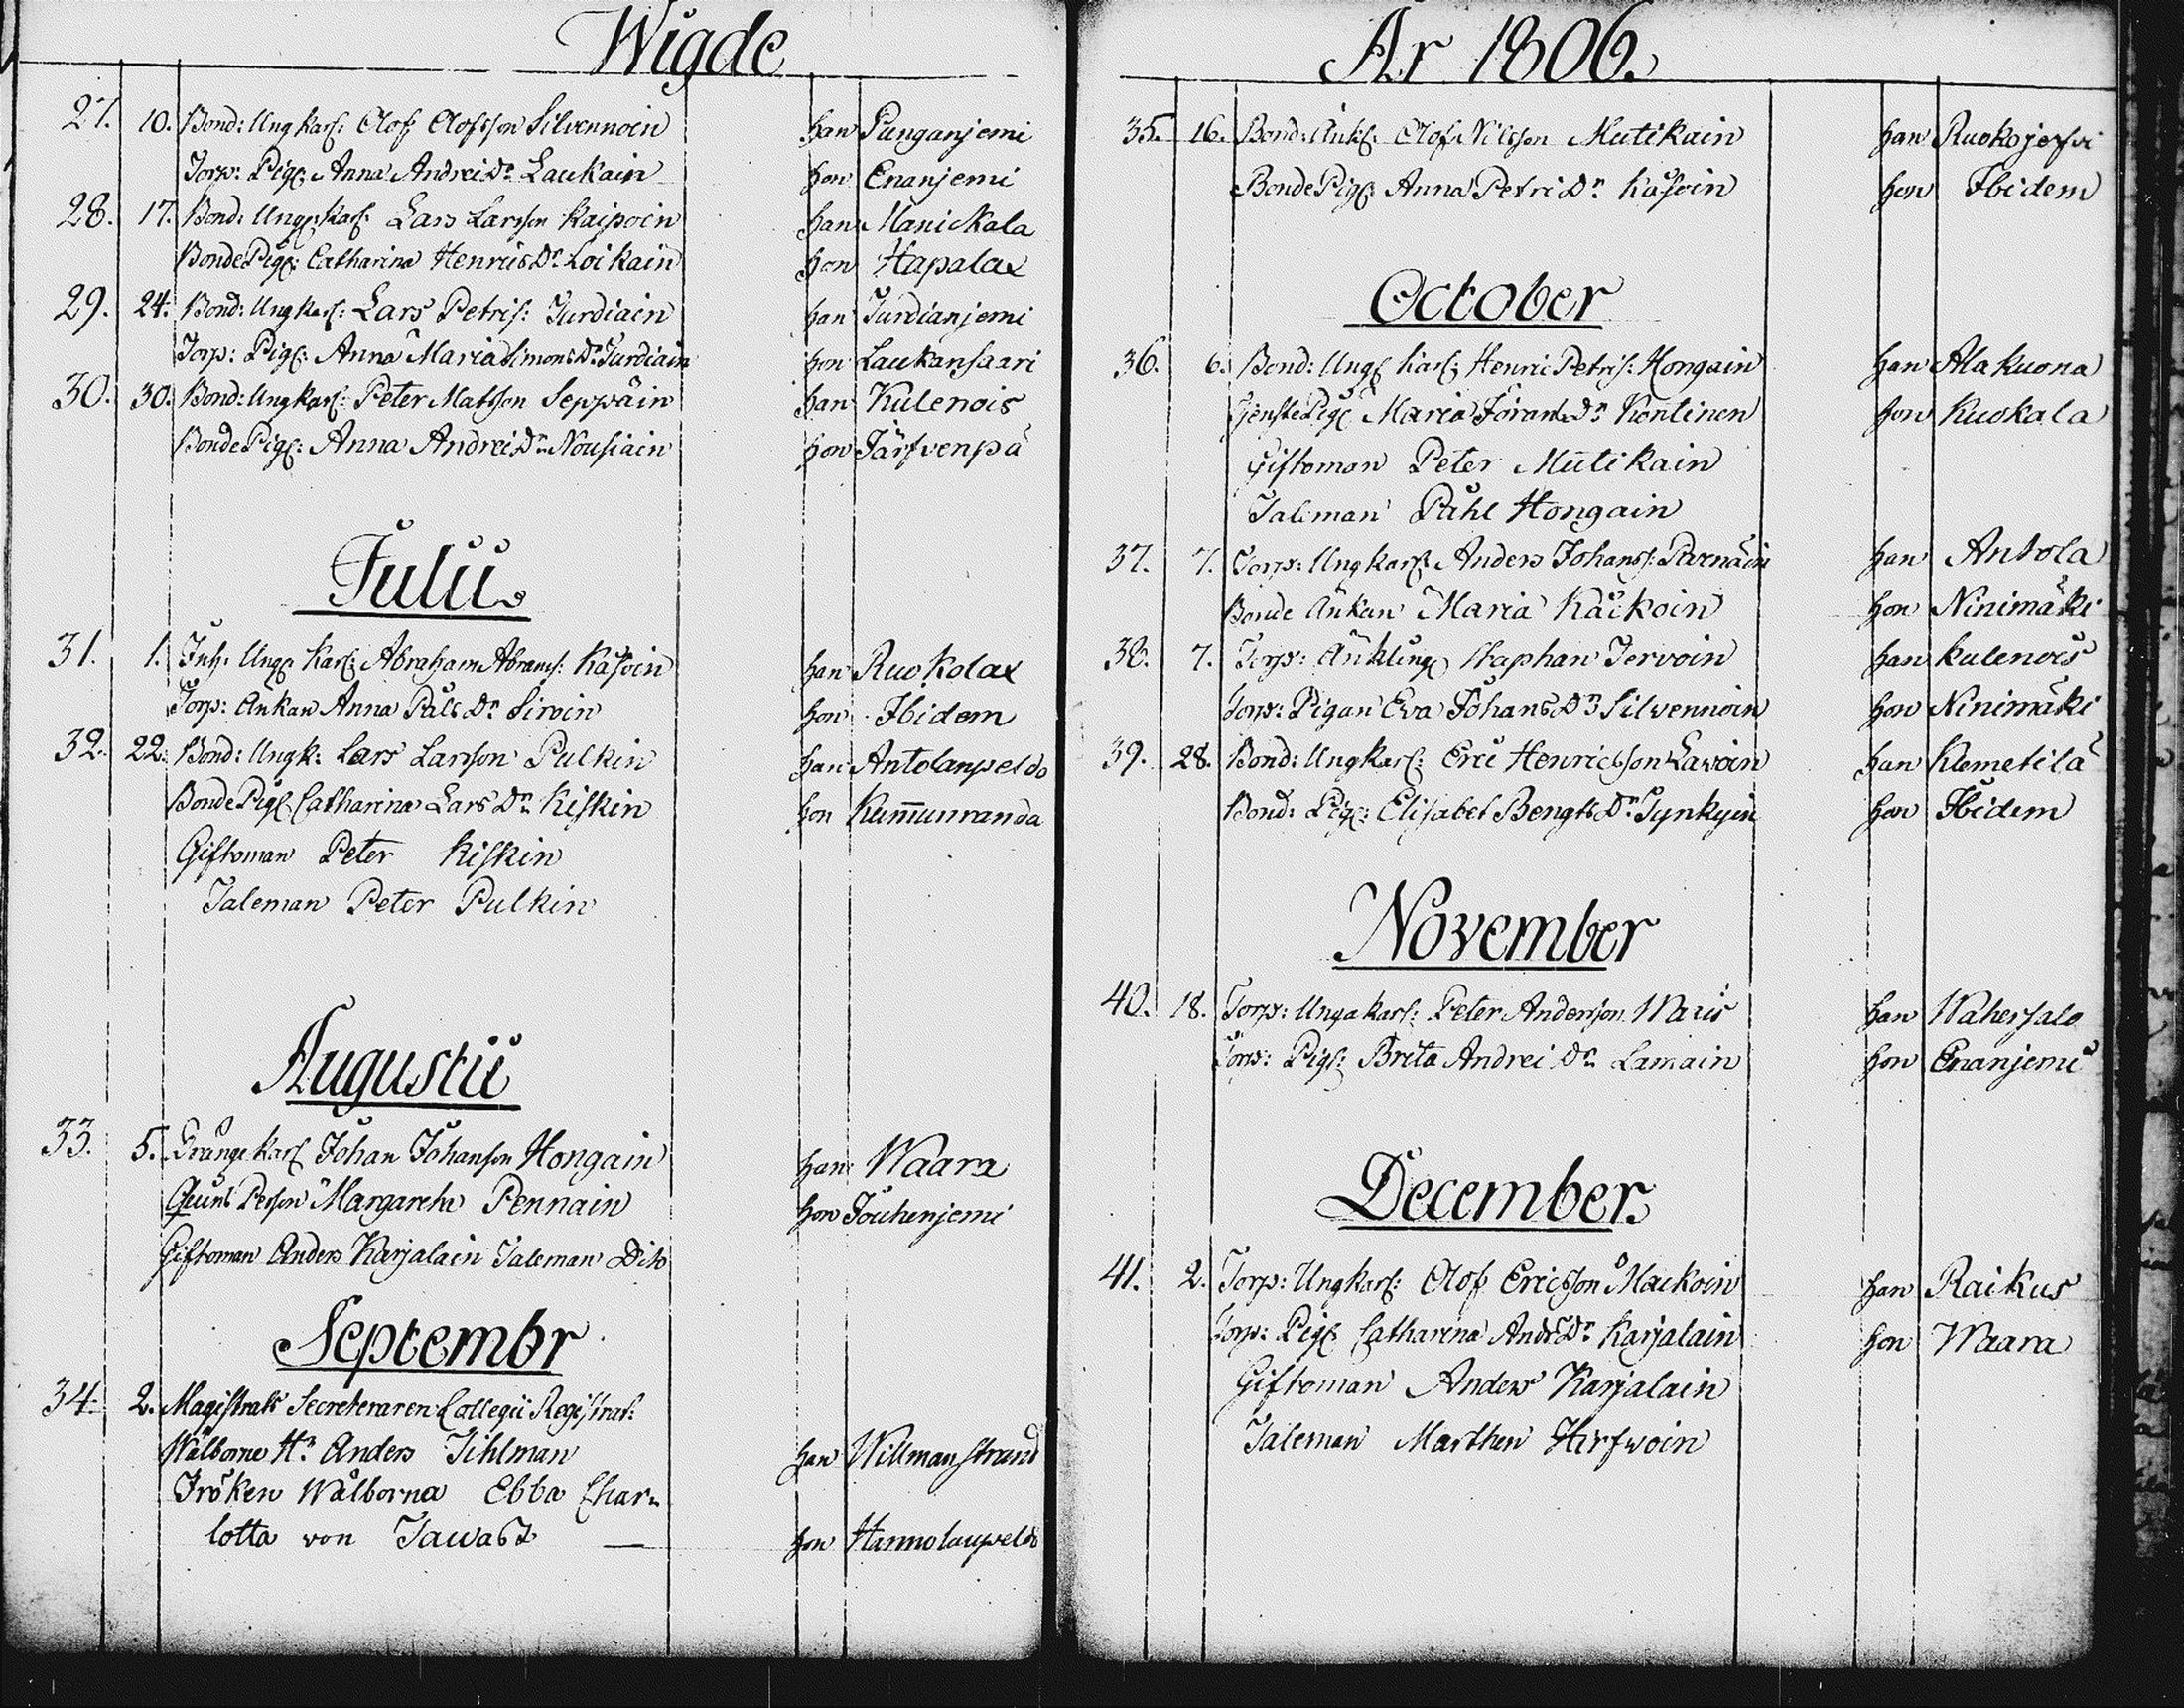 Wigde
27. 10. Bond: Ung karl: Olof Olofsson Silvennoin han Punganjemi
Torp: Pig: Anna Andrei Dr. Laukain hon Enanjemi
28. 17. Bond: Ung: karl: Lars Larsson Kaipoin han Manickala
Bonde Pig: Catharina Henrics Dr. Loikain hon Hapalax
29. 24. Bond: Ung karl: Lars Petris: Turdiain han Turdianjemi
Torp: Pig: Anna Maria Simons Dr. Turdiain hon Laukansaari
30. 30. Bond: Ung karl: Peter Matsson Seppäin han Kulenois
Bonde Pig: Anna Andrei Dr. Nousiain hon Järfvenpä
Julii
31. 1. Inh: Ung: Karl: Abraham Abrams: Käsoin han Ruokolax
Torp: Änkan Anna Påls Dr. Siroin hon Ibidem
32. 22. Bond: Ungk: Lars Larsson Pulkin han Antolanpeldo
Bonde Pig: Catharina Lars Dr. Kiskin hon Kum̅unranda
Giftoman Peter Kiskin
Taleman Peter Pulkin
Augustii
33. 5. Dränge karl Johan Johanson Hongain han Waara
Person Margareta Pennain hon Jouhenjemi
Giftoman Anders Karjalain Taleman Dito
Septembr
34. 2. Magistrats Secreteraren Collegii Registrat:
Wälborne Hr. Anders Tihlman han Willmanstrand
Fröken Wälborna Ebba Char-
lotta von Tawast — hon Hannolanpeldo
År 1806.
35. 16. Bond: Änkl: Olof Nilsson Mutikain han Ruokojerfvi
Bonde Pig: Anna Petri Dr. Käsoin hon Ibidem
October
36. 6. Bond: Ung karl: Henric Petris: Hongain han Alakuona
Tjenste Pig: Maria Dr. Kontinen hon Kuokala
Giftoman Peter Mutikain
Taleman Påhl Hongain
37. 7. Torp: Ung karl: Anders Johans: Parnäin han Antola
Bonde Änkan Maria Käckoin hon Ninimäki
38. 7. Torp: Änkling Staphan Tervoin han Kulenois
Torp: Pigan Eva Johans Dr Silvennoin hon Ninimäki
39. 28. Bond: Ung Karl: Eric Henricsson Lawoin han Klemetilä
Bond: Pig: Elisabet Bengts Dr. Tynkyin hon Ibidem
November
40. 18. Torp: Unga karl: Peter Andersson Wais han Wahersalo
Torp: Pig: Brita Andrei Dr. Lamain hon Enanjemi
December
41. 2. Torp: Ung karl: Olof Ericsson Mackoin han Raikus
Torp: Pig: Catharina And: Dr. Karjalain hon Waara
Giftoman Anders Karjalain
Taleman Marthen Hirfwoin